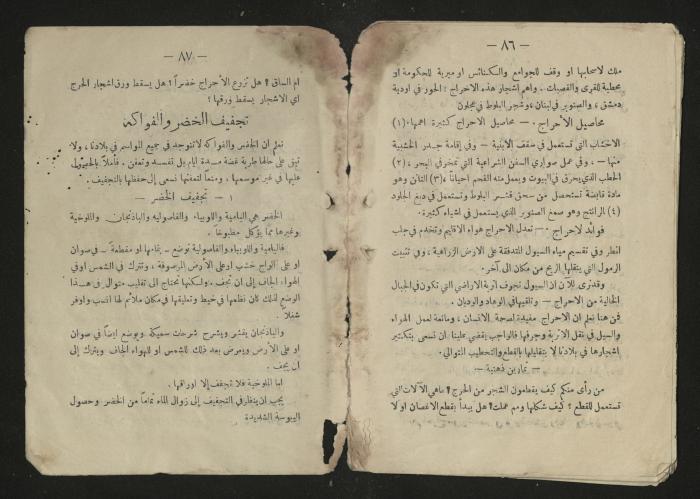 — ٨٦ —
ملك لاصحابها او وقف للجوامع والكنائس او ميرية للحكومة او
محطبة للقرى والقصبات . واهم اشجار هذه الاحراج : الحور في اودية
دمشق ، والصنوبر في لبنان ، وشجر البلوط في عجلون
محاصيل الاحراج . — محاصيل الاحراج كثيرة اهمها : (١)
الاخشاب التي تستعمل في سقف الابنية — وفي إقامة جدر الخشبية
منها — ، وفي عمل صواري السفن الشراعية التي تمخر في البحر ، (٢)
الحطب الذي يحرق في البيوت ويعمل منه الفحم احياناً ، (٣) التانن وهو
مادة قابضة تستحصل من سحق قشر البلوط وتستعمل في دبغ الجلود
(٤) الراتنج وهو صمغ الصنوبر الذي يستعمل في اشياء كثيرة .
فوائد لاحراج : — تعدل الاحراج هواء الاقليم وتخدم في جلب
المطر وفي تقسيم مياه السيول المتدفقة على الارض الزراعية ، وفي تثبيت
الرمول التي ينقلها الريح من مكان الى آخر .
وقد نرى للآن ان السيول تجرف اتربة الاراضي التي تكون في الجبال
الخالية من الاحراج — وتلقيها في الوهاد والوديان .
فمن هنا نعلم ان الاحراج مفيدة لصحة الانسان ، ومانعة لعمل الهواء
والسيل في نقل الاتربة وجرفها فالواجب يقضي علينا ان نسعى بتكثير
اشجارها في بلادنا لا بتقليلها بالقطع والتحطيب التوالي .
— تمارين ذهنية —
من رأى منكم كيف يقطعون الشجر من الحرج ؟ ما هي الآلات التي
تستعمل للقطع ؟ كيف شكلها ومم عملت ؟ هل يبدأ بقطع الاغصان اولا
— ٨٧ —
ام الساق ؟ هل تزوع الأحراج خضراً ؟ هل يسقط ورق اشجار الحرج
اي الاشجار يسقط ورقها ؟
تجفيف الخضر والفواكه
نعلم ان الخضر والفواكه لا توجد في جميع المواسم في بلادنا ، ولا
تبقى على حالها طرية غضة مدة ايام بل تفسد وتعفن . فأملاً بالحصول
عليها في غير موسمها ، ومنعاً لتعفنها نسعى إلى حفظها بالتجفيف .
١ — تجفيف الخضر —
الخضر هي البامية واللوبياء والفاصوليه والباذنجان والملوخية
وغيرها مما يؤكل مطبوخاً .
فالبامية واللوبياء والفاصولية توضع — بتمامها او مقطعة — في صوان
او على ألواح خشب او على الأرض المرصوفة ، وتترك في الشمس او في
الهواء الجاف إلى ان تجف ، ولكنها تحتاج الى تقليب متوال في هذا
الوضع لذلك كان نظمها في خيط وتعليقها في مكان ملائم لها انسب واوفر
شغلاً .
والباذنجان يقشر ويشرح شرحات سميكة ويوضع ايضاً في صوان
او على الأرض ويعرض بعد ذلك للشمس او للهواء الجاف ويترك إلى
ان يجف .
اما الملوخية فلا تجفف إلا اوراقها .
يجب ان ينظر في التجفيف إلى زوال الماء تماماً من الخضر وحصول
اليبوسة الشديدة